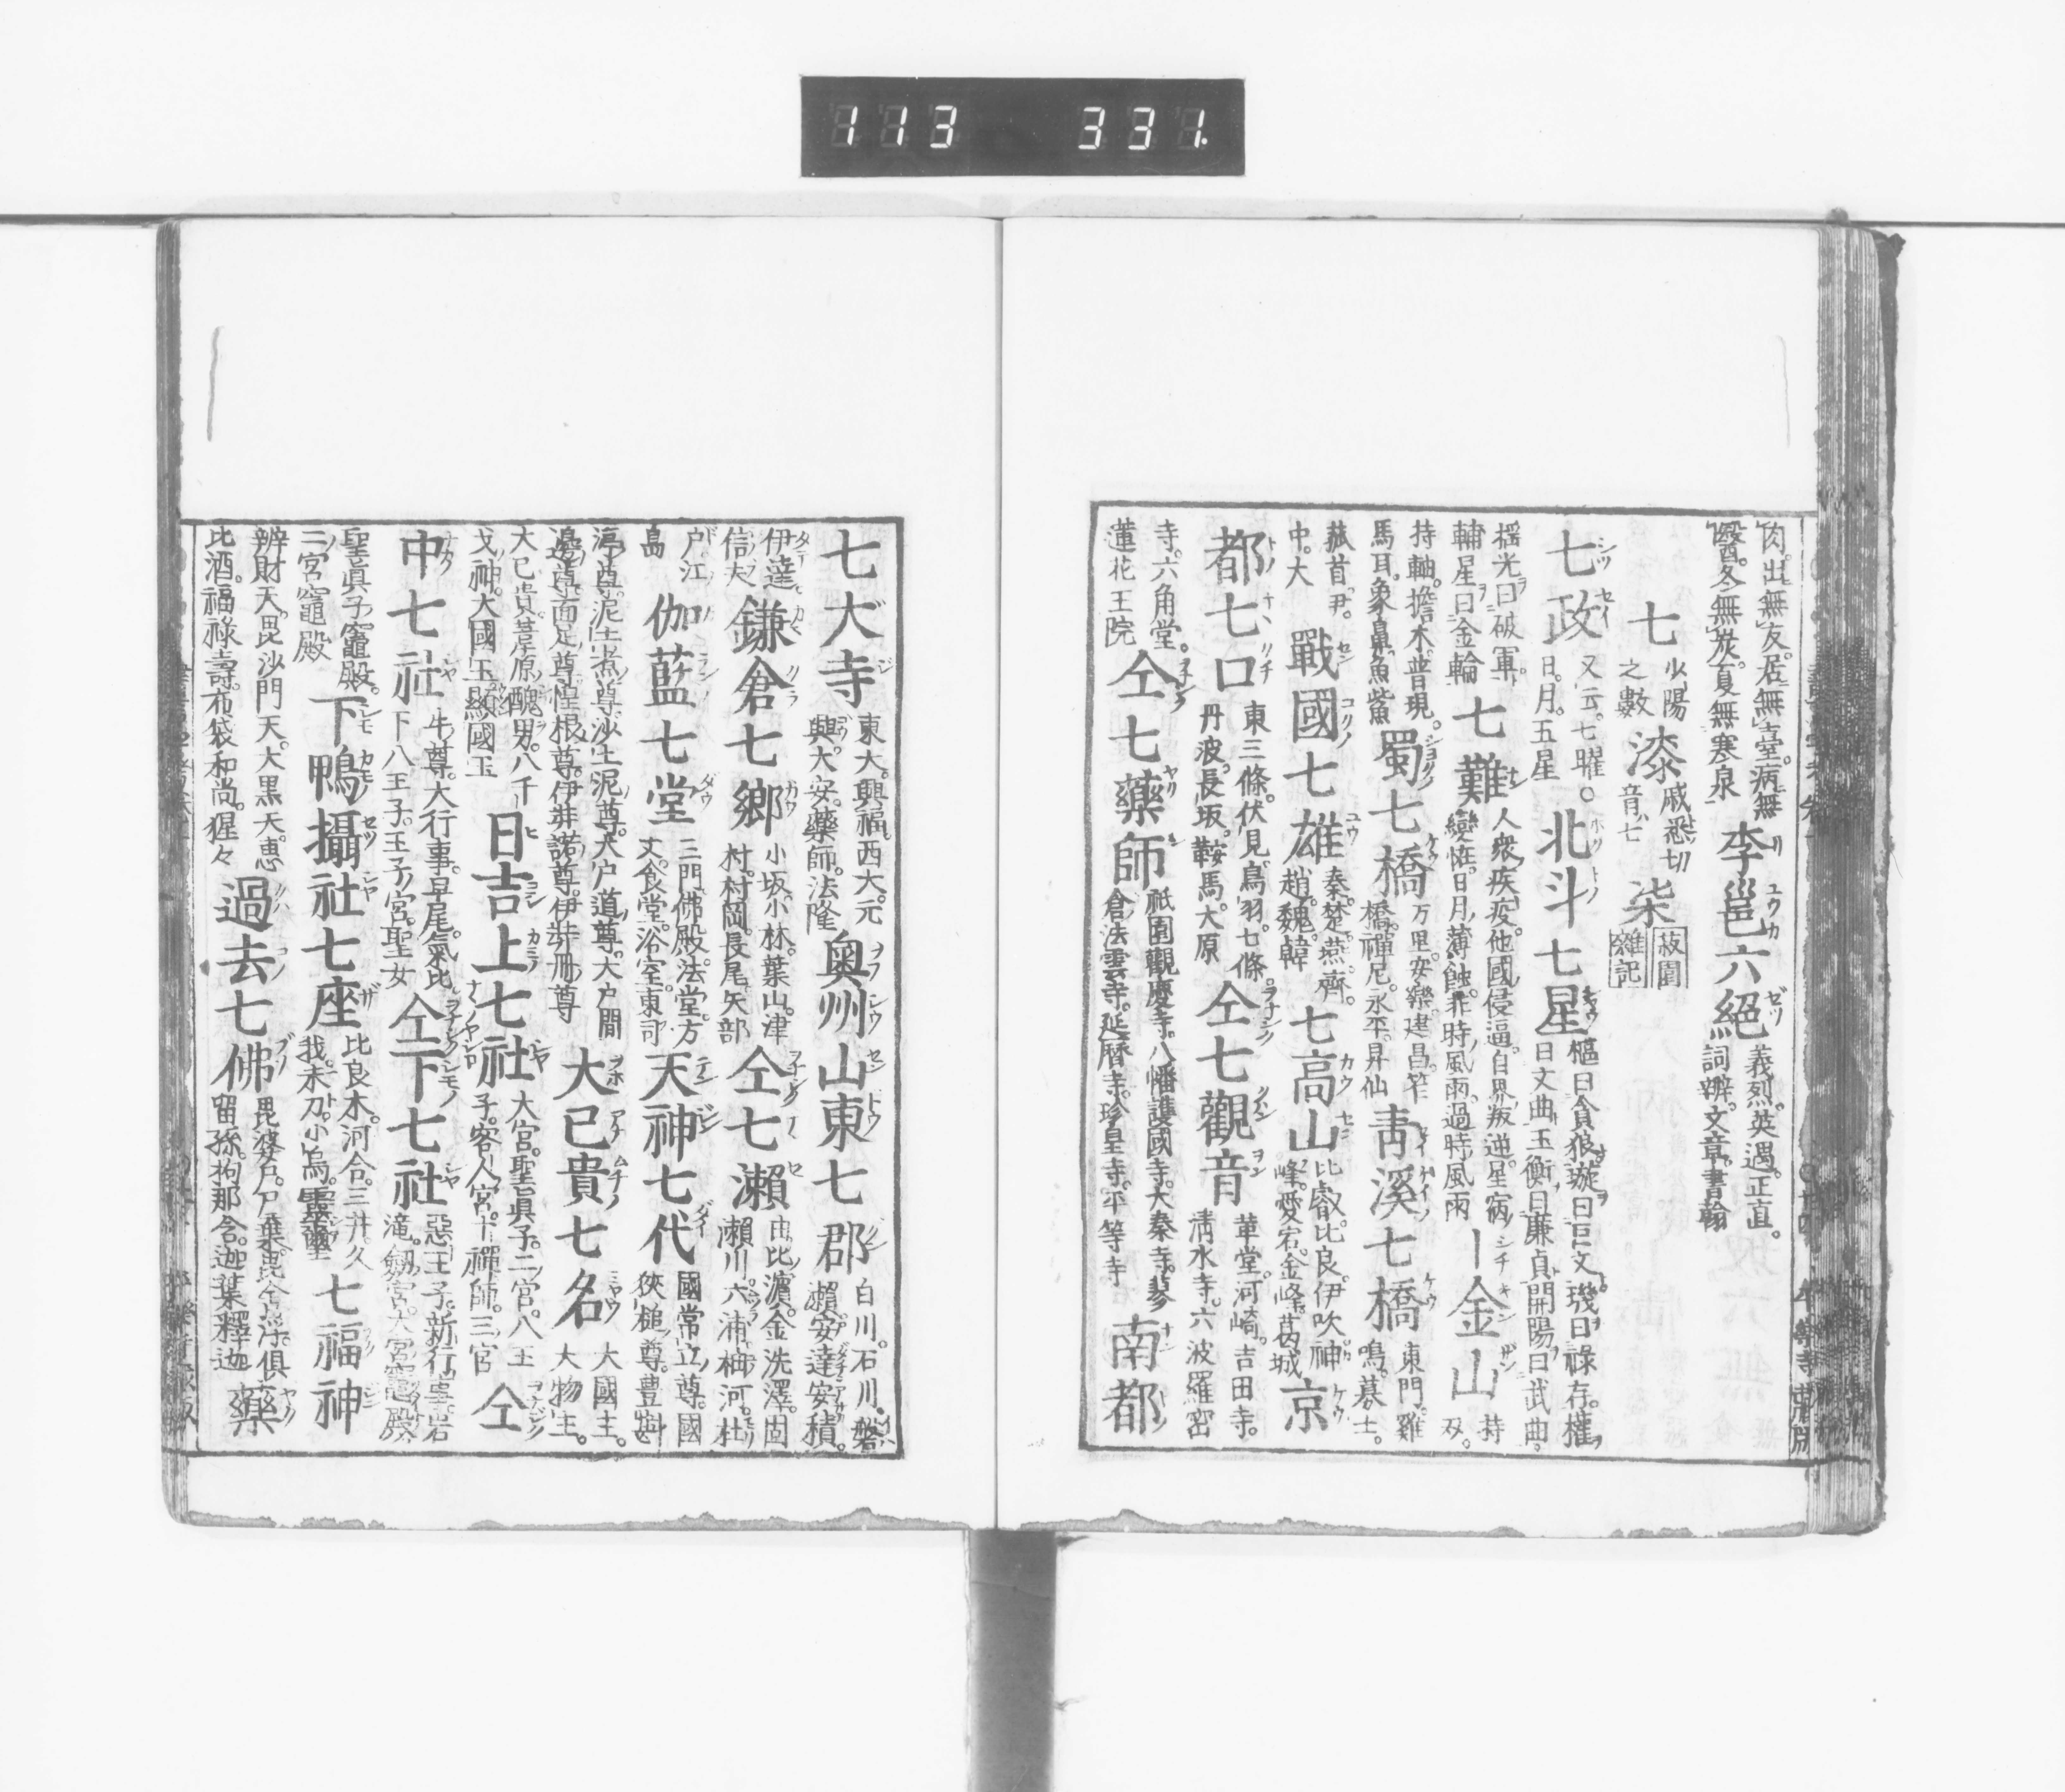 113 331.
肉。出無友。居無臺。病無
醫。冬無炭。夏無寒泉
李邕六絕
義烈。英遇。正直。
詞辨。文章。書翰
七
少陽
之數
漆
戚悉切
音七
柒
七政
又云。七曜。
日。月。五星
北斗七星
樞曰貪狼璇曰巨文璣曰祿存。權
曰文曲玉衡曰廉貞開陽曰武曲
搖光曰破軍
輔星曰金輪
七難
人衆疾疫。他國侵逼。自界叛逆。星宿
變恠。日月薄蝕。非時風雨。過時風雨
金山
持
双。
持軸。擔木。普現。
馬耳。象鼻。魚觜
蜀七橋
万里。安樂。建昌。笮
橋。禪尼。永平。昇仙
靑溪七橋
東門。雞
鳴。募士。
菰首。尹。
中。大
戰國七雄
秦。楚。燕。齊。
趙。魏。韓
七高山
比叡。比良。伊吹。神
峰。愛宕。金峰。葛城
京
都七口
東三條。伏見。鳥羽。七條。
丹波。長坂。鞍馬。大原
仝七觀音
革堂。河崎。吉田寺。
清水寺。六波羅密
寺。六角堂。
蓮花王院
仝七藥師
祇園觀慶寺。八幡護國寺。太秦寺。蓼
倉法雲寺。延曆寺。珍皇寺。平等寺
南都
七大寺
東大。興福。西大。元
興。大安。藥師。法隆
奥州山東七郡
白川。石川。磐
瀨。安達。安積。
伊達
信夫
鎌倉七鄉
小坂。小林。葉山。津
村。村岡。長尾。矢部
仝七瀨
由比濵。金洗澤。固
瀨川。六浦。柚河。杜
戸。江
島
伽藍七堂
三門。佛殿。法堂。方
丈。食堂。浴室。東司
天神七代
國常立尊。國
狹槌尊。豊斟
渟尊。泥土煮尊。沙土泥尊。大戸道尊。大戸間
邊尊。面足尊。惶根尊。伊弉諾尊。伊弉冊尊
大己貴七名
大國主。
大物主。
大己貴。葦原醜男。八千
戈神。大國玉。顯國玉
日吉上七社
大宮。聖眞子。二宮。八王
子。客人宮。十禪師。三宮
仝
中七社
牛尊。大行事。早尾。氣比
下八王子。王子宮。聖女
仝下七社
惡王子。新行事。岩
滝。劔宮。大宮竈殿
聖眞子竈殿。
二宮竈殿
下鴨攝社七座
比良木。河合。三井。久
我。末刀。小烏。靈璽
七福神
辨財天。毘沙門天。大黒天。恵
比酒。福祿壽。布袋和尚。猩々
過去七佛
毘婆尸。尸棄。毘舎浮。俱
留孫。拘那含。迦葉。釋迦
藥